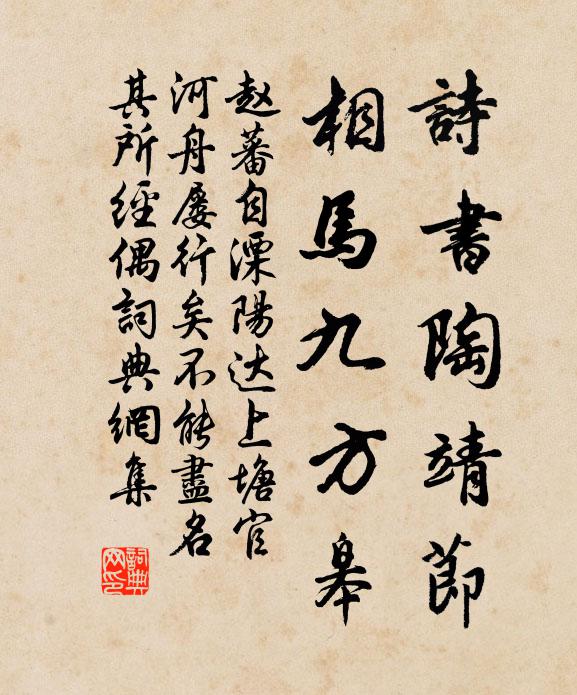 詩書陶靖節
相馬九方皋
赵蕃自溧陽达上塘官
河舟屡行矣不能盡名
其所經偶詞典網集
詞典网印